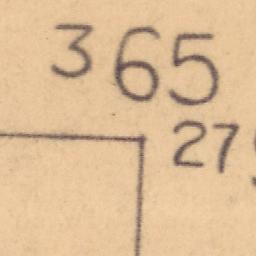 365
27